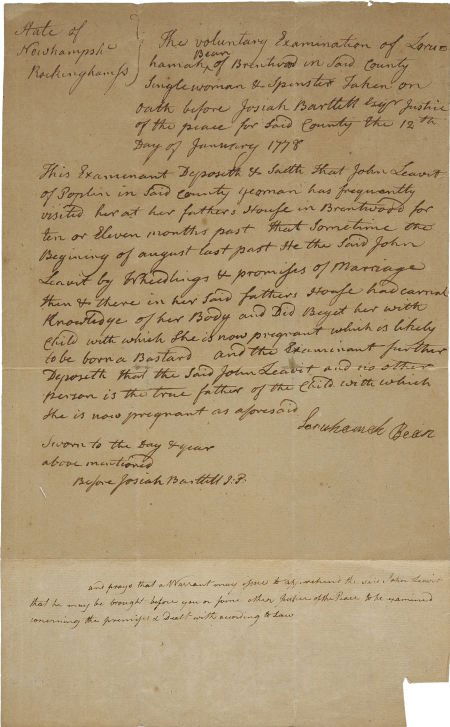 State of
Newhampshr
Rockingham ss
The voluntary Examination of Loru=
hamah Bean of Brentwood in Said County
Singlewoman & Spinster Taken on
oath before Josiah Bartlett Esqr Justice
of the peace for Said County the 12th
Day of January 1778
This Examinant Deposeth & Saith that John Leavit
of Poplin in Said County yeoman has frequently
visited her at her fathers House in Brentwood for
ten or Eleven months past that Sometime the
Begining of august last past He the Said John
Leavit by Wheedlings & promises of Marriage
then & there in her Said fathers House had carnal
Knowledge of her Body and Did Begit her with
Child with which She is now pregnant which is likely
to be born a Bastard and the Examinant further
Deposeth that the Said John Leavit and no other
person is the true father of the Child with which
She is now pregnant as aforesaid
Loruhamah Bean
Sworn to the Day & year
above mentioned
Before Josiah Bartlett J.P.
and prays that a Warrant may issue to apprehend the said John Leavit
that he may be brought before you or some other Justice of the Peace to be examined
concerning the premises & Dealt with according to Law